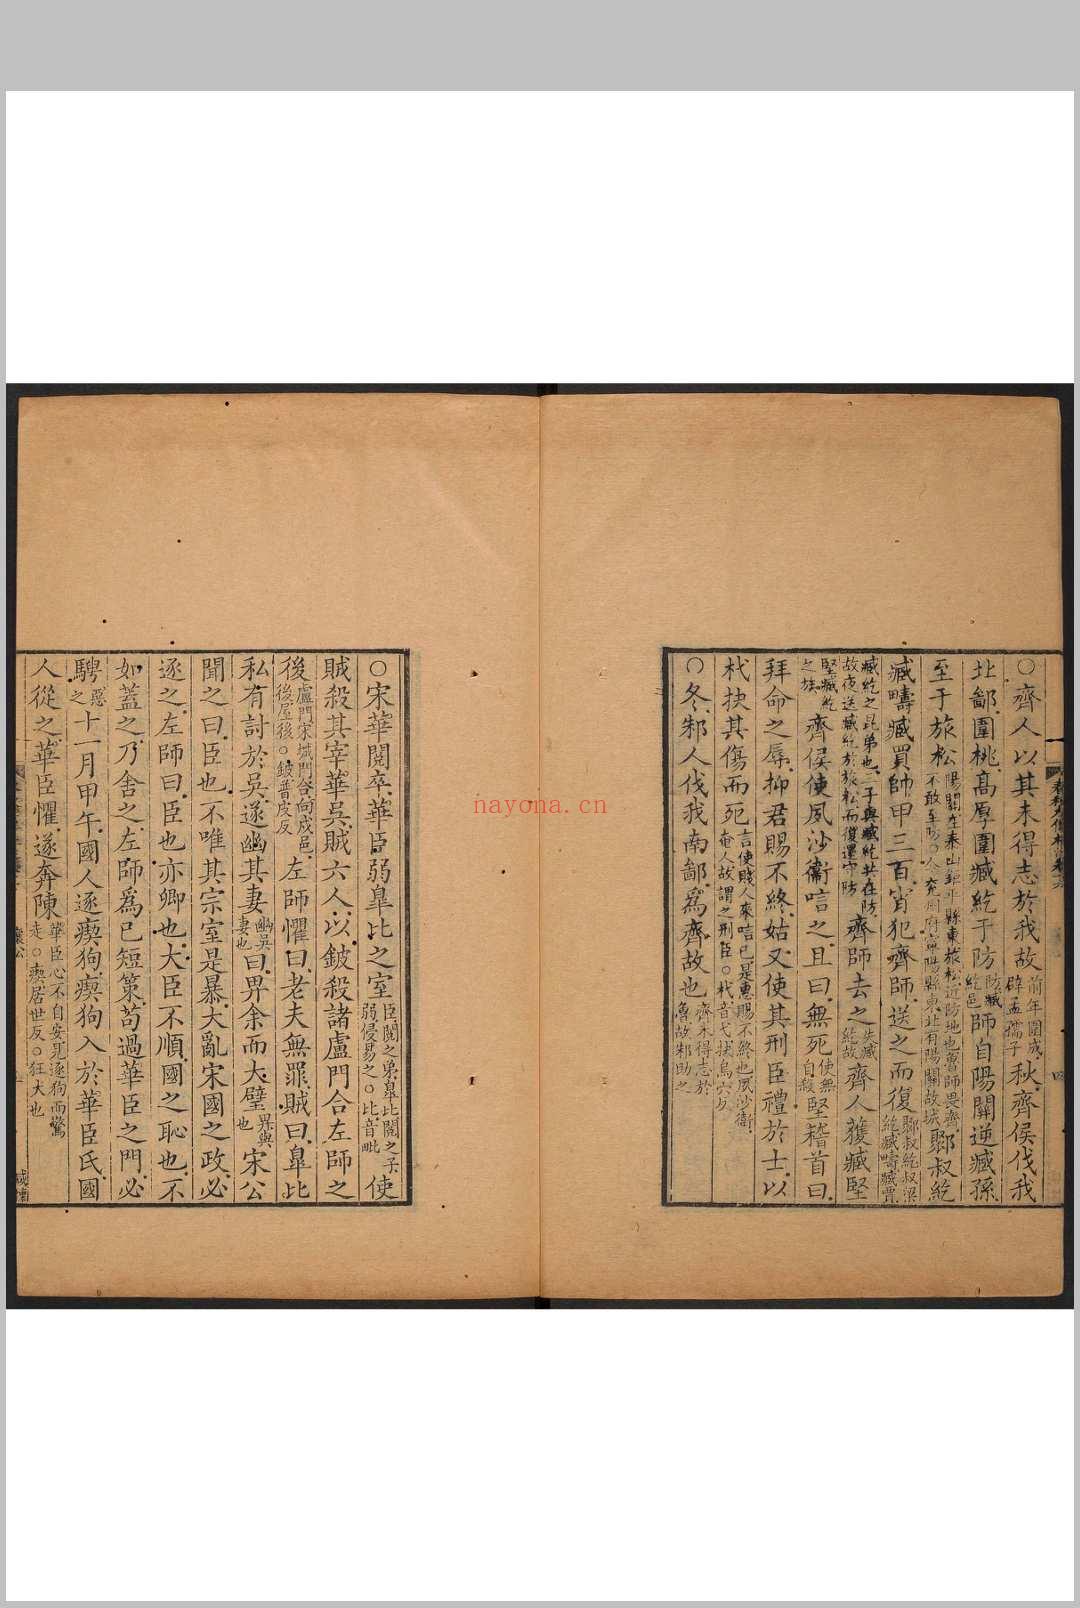 ○齊人以其未得志於我故前年圍成辟孟孺子秋齊侯伐我
北鄙圍桃高厚圍臧紇于防防臧紇邑師自陽關逆臧孫
至于旅松陽關在泰山鉅平縣東旅松近防地也魯師畏齊不敢至防○鄹叔紇
臧疇臧賈帥甲三百宵犯齊師送之而復鄹叔紇叔梁紇臧疇臧賈
臧紇之昆弟也三子與臧紇共在防故夜送臧紇於旅松而復還守防齊師去之失臧紇故齊人獲臧堅
堅臧紇之族齊侯使夙沙衛唁之且曰無死使無自殺堅稽首曰
拜命之辱抑君賜不終姑又使其刑臣禮於士以
杙抉其傷而死言使賤人來唁已是惠賜不終也夙沙衛奄人故謂之刑臣○杙音弋抉烏穴反
○冬邾人伐我南鄙爲齊故也齊未得志於魯故邾助之
○宋華閱卒華臣弱臯比之室臣閱之弟臯比閱之子弱侵易之○比音毗使
賊殺其宰華吳賊六人以鈹殺諸盧門合左師之
後盧門宋城門合向戌邑後屋後○鈹普皮反左師懼曰老夫無罪賊曰臯比
私有討於吳遂幽其妻幽吳妻也曰畀余而大璧畀與也宋公
聞之曰臣也不唯其宗室是暴大亂宋國之政必
逐之左師曰臣也亦卿也大臣不順國之恥也不
如蓋之乃舍之左師爲已短策苟過華臣之門必
騁惡之十一月甲午國人逐瘈狗瘈狗入於華臣氏國
人從之華臣懼遂奔陳華臣心不自安見逐狗而驚走○瘈居世反○狂犬也
襄公
nayona.cn